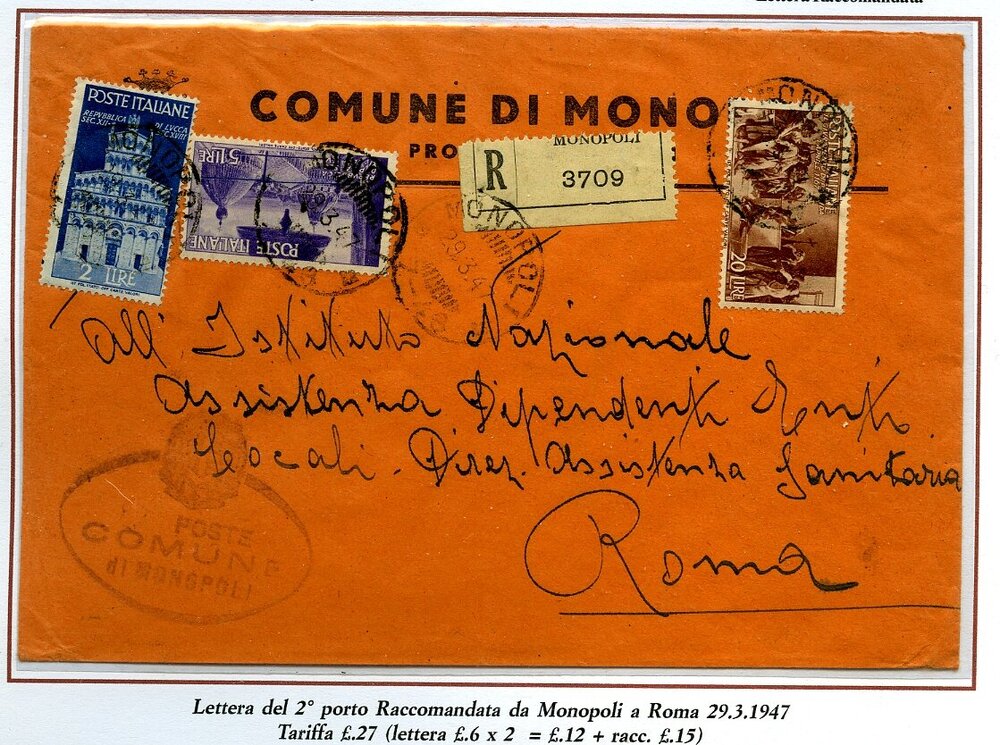 Lettera Raccomandata
COMUNE DI MONO
PRO
POSTE ITALIANE
REPUBBLICA DI LUCCA
SEC. XII - SEC. XVIII
2 LIRE
POSTE ITALIANE
5 LIRE
MONOPOLI
R
3709
POSTE ITALIANE
20 LIRE
MONOPOLI
29.3.4
MONOPOLI
MONOPOLI
All' Istituto Nazionale
Assistenza Dipendenti Enti
Locali - Direz. Assistenza Sanitaria
Roma
POSTE
COMUNE
di MONOPOLI
Lettera del 2° porto Raccomandata da Monopoli a Roma 29.3.1947
Tariffa £.27 (lettera £.6 x 2 = £.12 + racc. £.15)